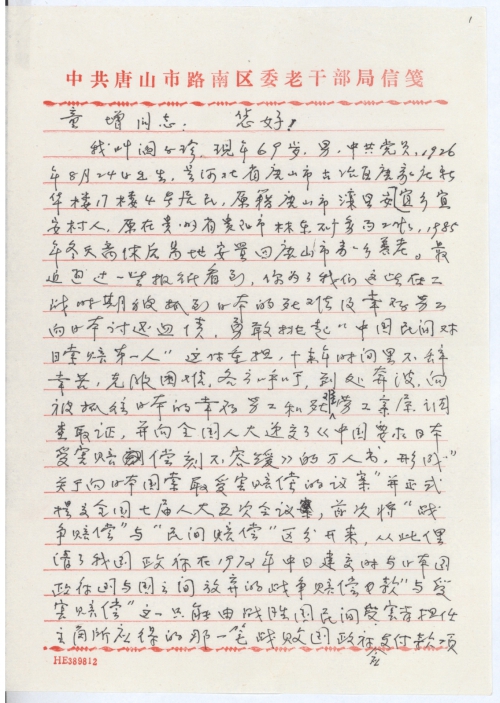 1
中共唐山市路南区委老干部局信笺
童增同志：您好！
我叫阎 珍，现年69岁，男，中共党员，1926
年8月24日生，是河北省唐山市古冶区唐家庄新
华楼17楼4号居民，原籍唐山市滦县安 宜乡宜
安村人，原在贵州省贵阳市林东 务局工作，1985
年冬天离休后易地安置回唐山市 乡养老。最
近通过一些报纸看到，你为了我们这些在二
战时期被抓到日本的死难侥幸存劳工
向日本讨还血债，勇敢挑起“中国民间对
日索赔第一人”这付重担，十来年时间里不辞
辛苦，克服困难，各方呼吁，到处奔波，向
被抓往日本的幸存劳工和死难劳工亲属调
查取证，并向全国人大递交了《中国要求日本
受害赔偿刻不容缓》的万人书，形成“
关于向日本国索取受害赔偿的议案”并正式
提交全国七届人大五次会议案，首次将“战
争赔偿”与“民间赔偿”区分开来，从此理
清了我国政府在1972年中日建交时与日本国
政府国与国之间放弃的战争赔偿 款”与受
害赔偿”这一只能由战胜国民间受害者担任
主角所应得的那一笔战败国政府应支付款项
HE389812